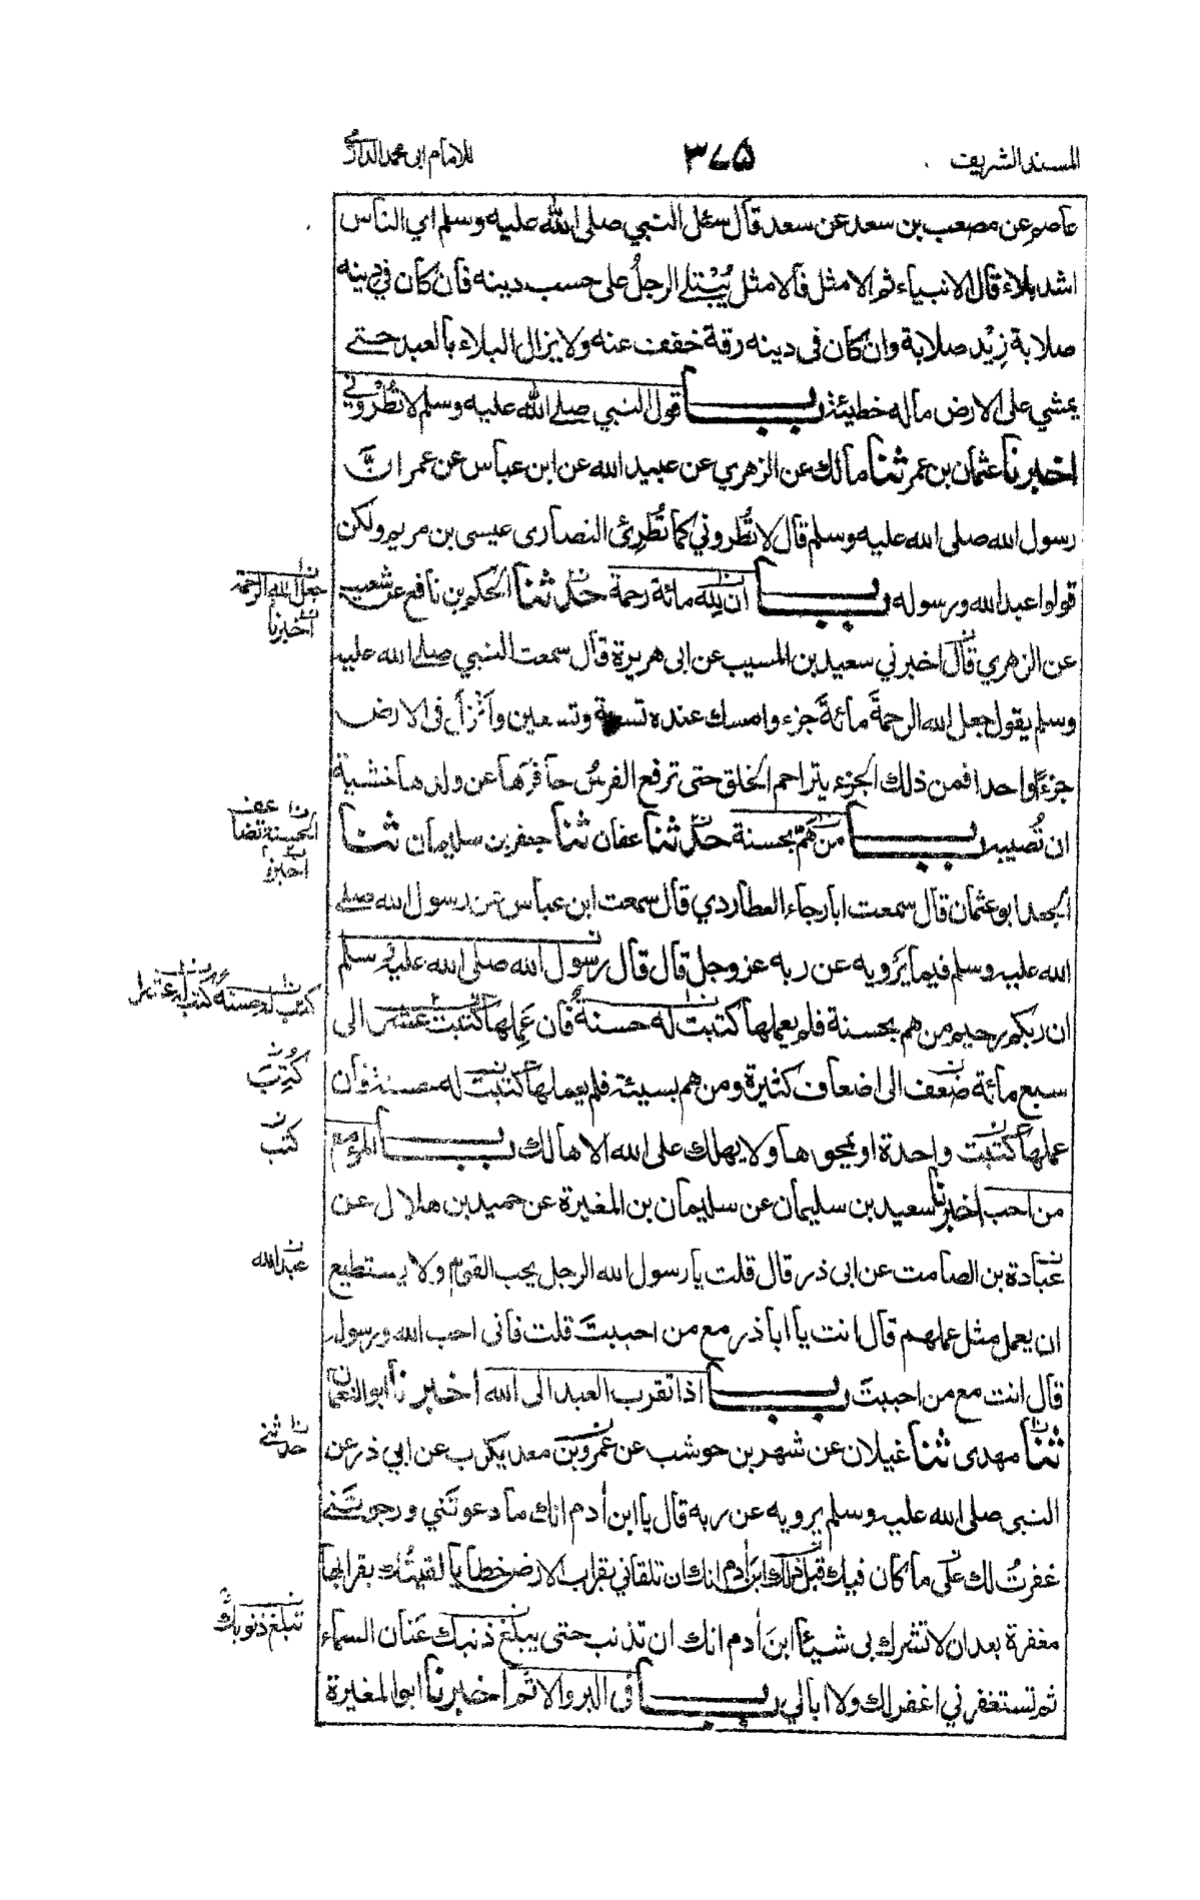 المسند الشريف ٣٧٥ للامام ابى محمد الدارمي
عاصم عن مصعب بن سعد عن سعد قال سئل النبي صلى الله عليه وسلم اي الناس
اشد بلاء قال الانبياء ثم الامثل فالامثل يُبْتلى الرجلُ على حسب دينه فان كان فى دينه
صلابة زِيْد صلابة وان كان فى دينه رقة خفف عنه ولا يزال البلاء بالعبد حتى
يمشي على الارض ماله خطيئة باب قول النبي صلى الله عليه وسلم لا تُطْروني
اخبرنا عثمان بن عمر ثنا مالك عن الزهري عن عبيد الله عن ابن عباس عن عمر انَّ
رسول الله صلى الله عليه وسلم قال لا تُطْروني كما تُطْرِئ النصارى عيسى بن مريم ولكن
قولوا عبد الله ورسوله باب ان لله مائة رحمة حدثنا الحكم بن نافع عن شعيب
جعل الله الرحمة
اخبرنا
عن الزهري قال اخبرني سعيد بن المسيب عن ابى هريرة قال سمعت النبي صلى الله عليه
وسلم يقول جعل الله الرحمةَ مائةَ جزء وامسك عنده تسعة وتسعين وانزل فى الارض
جزءًا واحدا فمن ذلك الجزء يتراحم الخلق حتى ترفع الفرسُ حافرَها عن ولدها خشية
ان تُصيبه باب من همّ بحسنة حدثنا عفان ثنا جعفر بن سليمان ثنا
اخبرنا
الجعد ابو عثمان قال سمعت ابا رجاء العطاردي قال سمعت ابن عباس عن رسول الله صلى
الله عليه وسلم فيما يَرويه عن ربه عز وجل قال قال رسول الله صلى الله عليه وسلم
ان ربكم رحيم من هم بحسنة فلم يعملها كتبت له حسنةً فان عَمِلها كتبت عشر الى
سبع مائة ضعف الى اضعاف كثيرة ومن هم بسيئة فلم يعملها كتبت له حسنة وان
عملها كتبت واحدة او يمحوها ولا يهلك على الله الا هالك باب المرء مع
كتب
من احب اخبرنا سعيد بن سليمان عن سليمان بن المغيرة عن حميد بن هلال عن
عبادة بن الصامت عن ابى ذر قال قلت يا رسول الله الرجل يحب القوم ولا يستطيع
عبد الله
ان يعمل مثل عملهم قال انت يا ابا ذر مع من احببتَ قلت فانى احب الله ورسوله
قال انت مع من احببتَ باب اذا تقرب العبد الى الله اخبرنا ابو النعمان
ثنا مهدى ثنا غيلان عن شهر بن حوشب عن عمرو بن معد يكرب عن ابي ذر عن
حدثني
النبي صلى الله عليه وسلم يرويه عن ربه قال يا ابن أدم انك ما دعوتَني ورجوتَني
غفرتُ لك على ما كان فيك قبل ذلك ابن أدم انك ان تلقاني بقراب الارض خطايا لقيتُك بقرابها
مغفرة بعد ان لا تشرك بى شيئا ابنَ أدم انك ان تذنب حتى يبلغ ذنبك عَنان السماء
تبلغ ذنوبك
ثم تستغفرني اغفر لك ولا ابالي باب فى البر والاثم اخبرنا ابو المغيرة